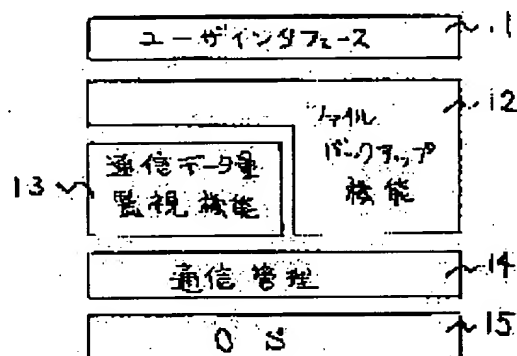 ユーザインタフェース
11
12
ファイル
バックアップ
機能
通信データ量
監視機能
13
通信管理
14
OS
15